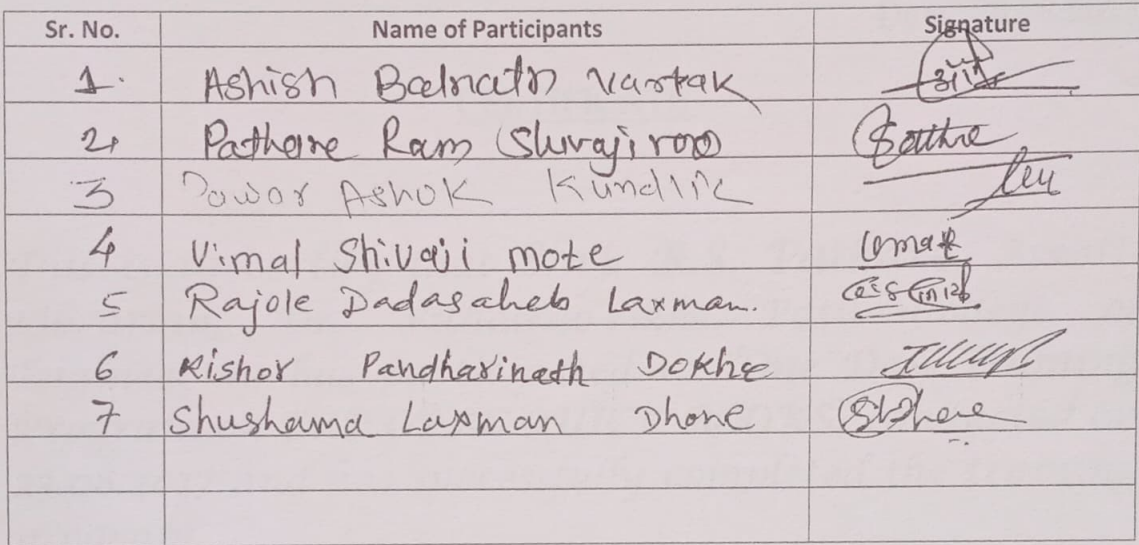 Sr. No. Name of Participants Signature
1. Ashish Balnath Vartak
2, Pathare Ram Shivajirao
3 Pawar Ashok Kundlik
4 Vimal Shivaji mote
5 Rajole Dadasaheb Laxman.
6 Kishor Pandharinath Dokhe
7 Shushama Laxman Dhone